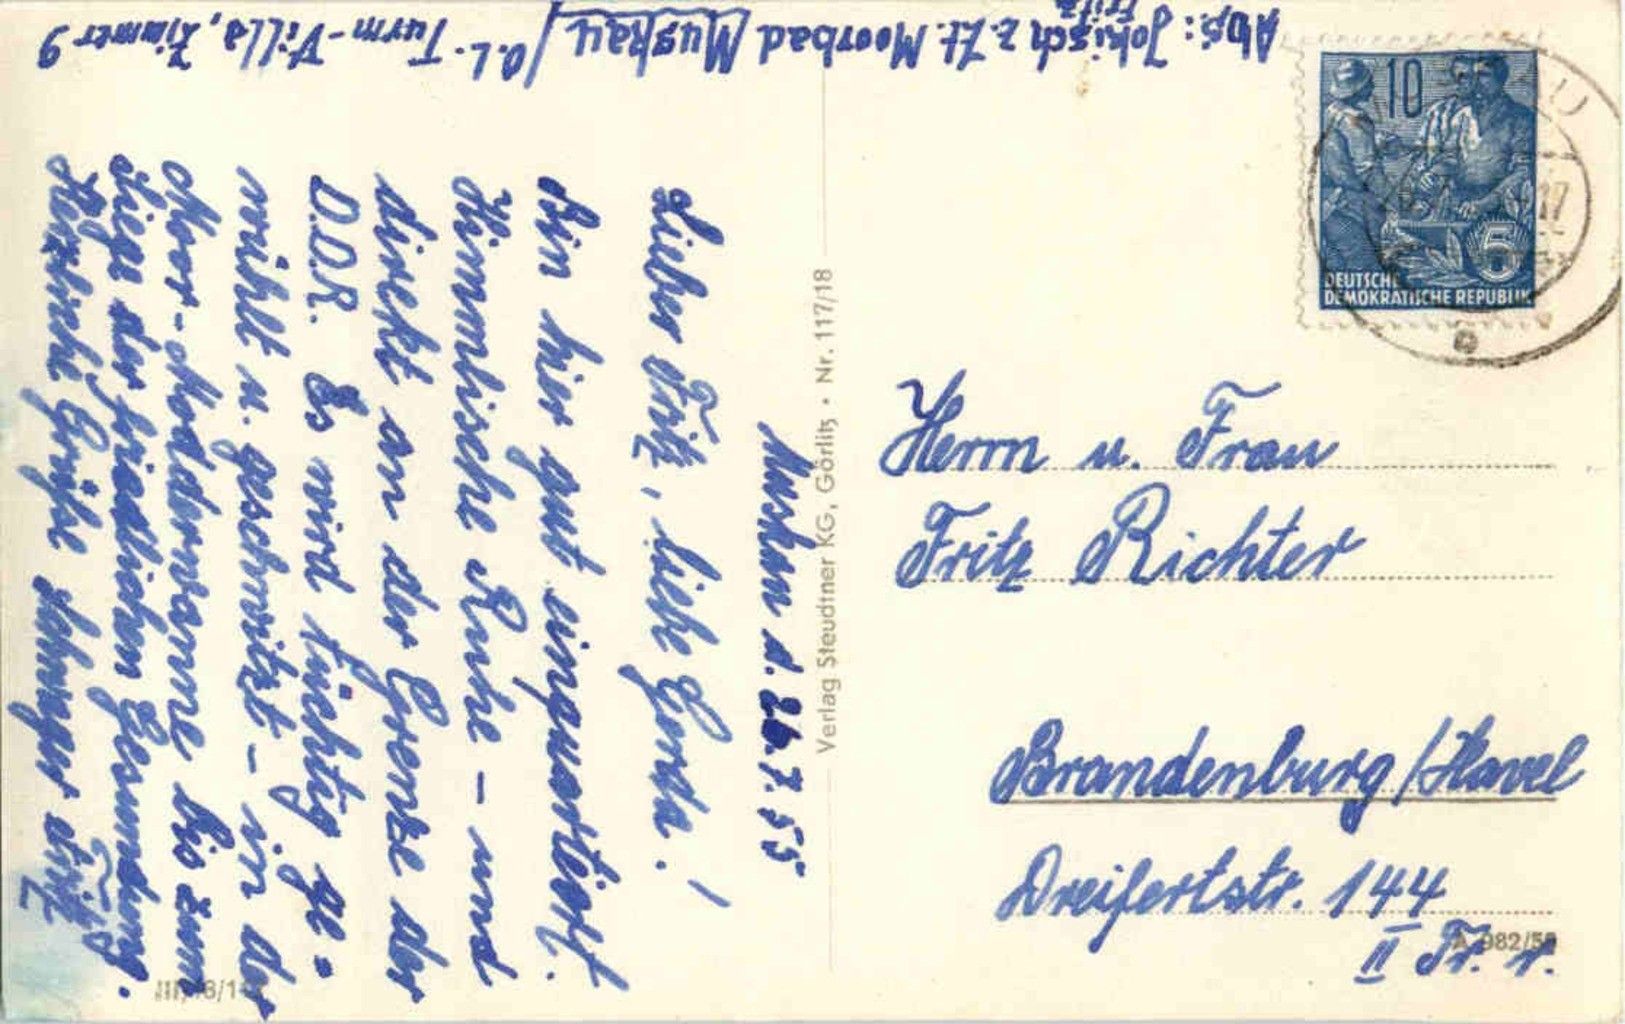 Abs.: Jokisch z. Zt. Moorbad Muskau / O.L. Turm-Villa, Zimmer 9
Fritz
Muskau d. 26.7.55
Lieber Fritz, liebe Gerda!
Bin hier gut einquartiert.
Himmlische Ruhe - und
direkt an der Grenze der
D.D.R. Es wird tüchtig ge-
wühlt u. geschwitzt - in der
Moor-Modderwanne bis zum
Siege der friedlichen Gesundung.
Herzliche Grüße Fritz
Verlag Steudtner KG, Görlitz • Nr. 117/18
10
5
DEUTSCHE
DEMOKRATISCHE REPUBLIK
Herrn u. Frau
Fritz Richter
Brandenburg/Havel
Dreifertstr. 144
II Tr. r.
A 982/55